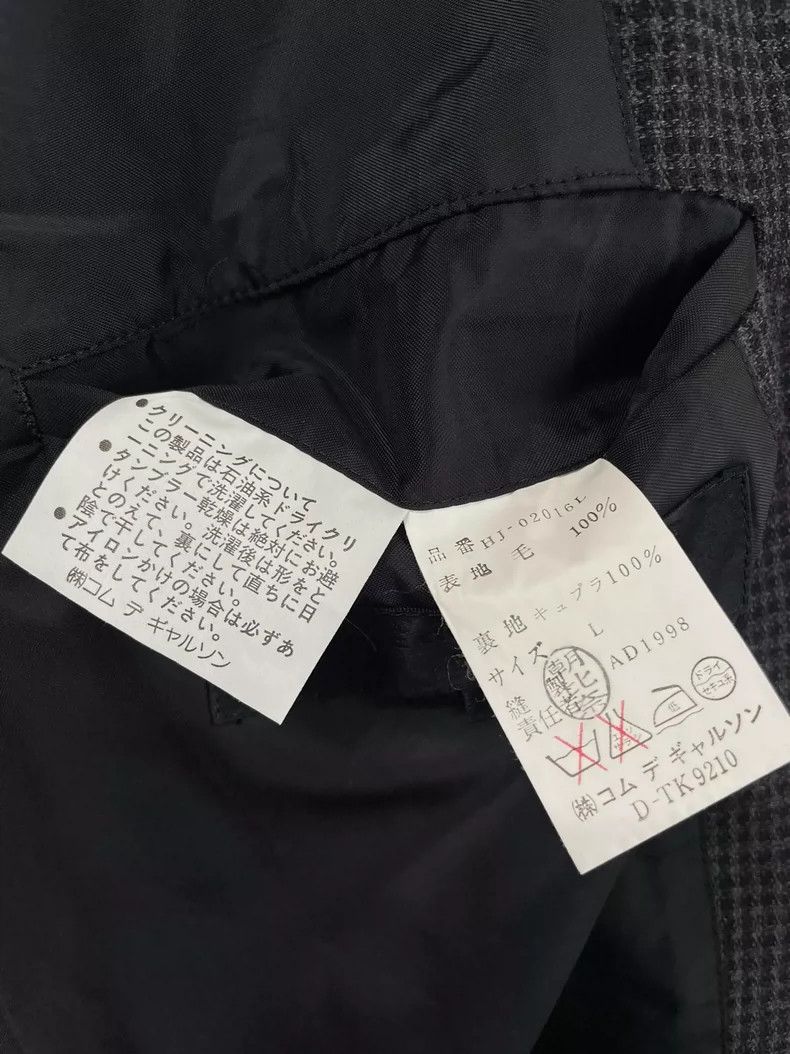 ●クリーニングについて
この製品は石油系ドライクリ
ーニングで洗濯してください。
●タンブラー乾燥は絶対にお避
けください。洗濯後は形をと
とのえて、裏にして直ちに日
陰で干してください。
●アイロンかけの場合は必ずあ
て布をしてください。
㈱コム デ ギャルソン
品番 HJ-02016L
表地 毛 100%
裏地 キュプラ100%
サイズ L
AD1998
縫製
責任者
朝比奈
ドライ
セキユ系
低
エンソ
サラシ
㈱コム デ ギャルソン
D-TK9210